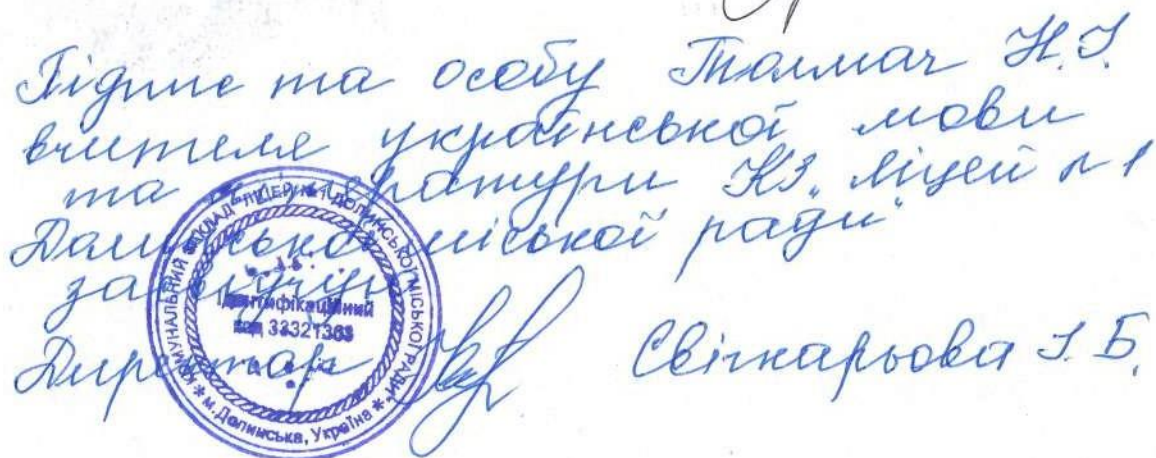 Підпис та особу Толмач Н.І.
вчителя української мови
та літератури КЗ „Ліцей №1
Долинської міської ради"
засвідчую
Директор Свічкарьова І.Б.
КОМУНАЛЬНИЙ ЗАКЛАД "ЛІЦЕЙ №1 ДОЛИНСЬКОЇ МІСЬКОЇ РАДИ"
* м. Долинська, Україна *
Ідентифікаційний
код 33321363